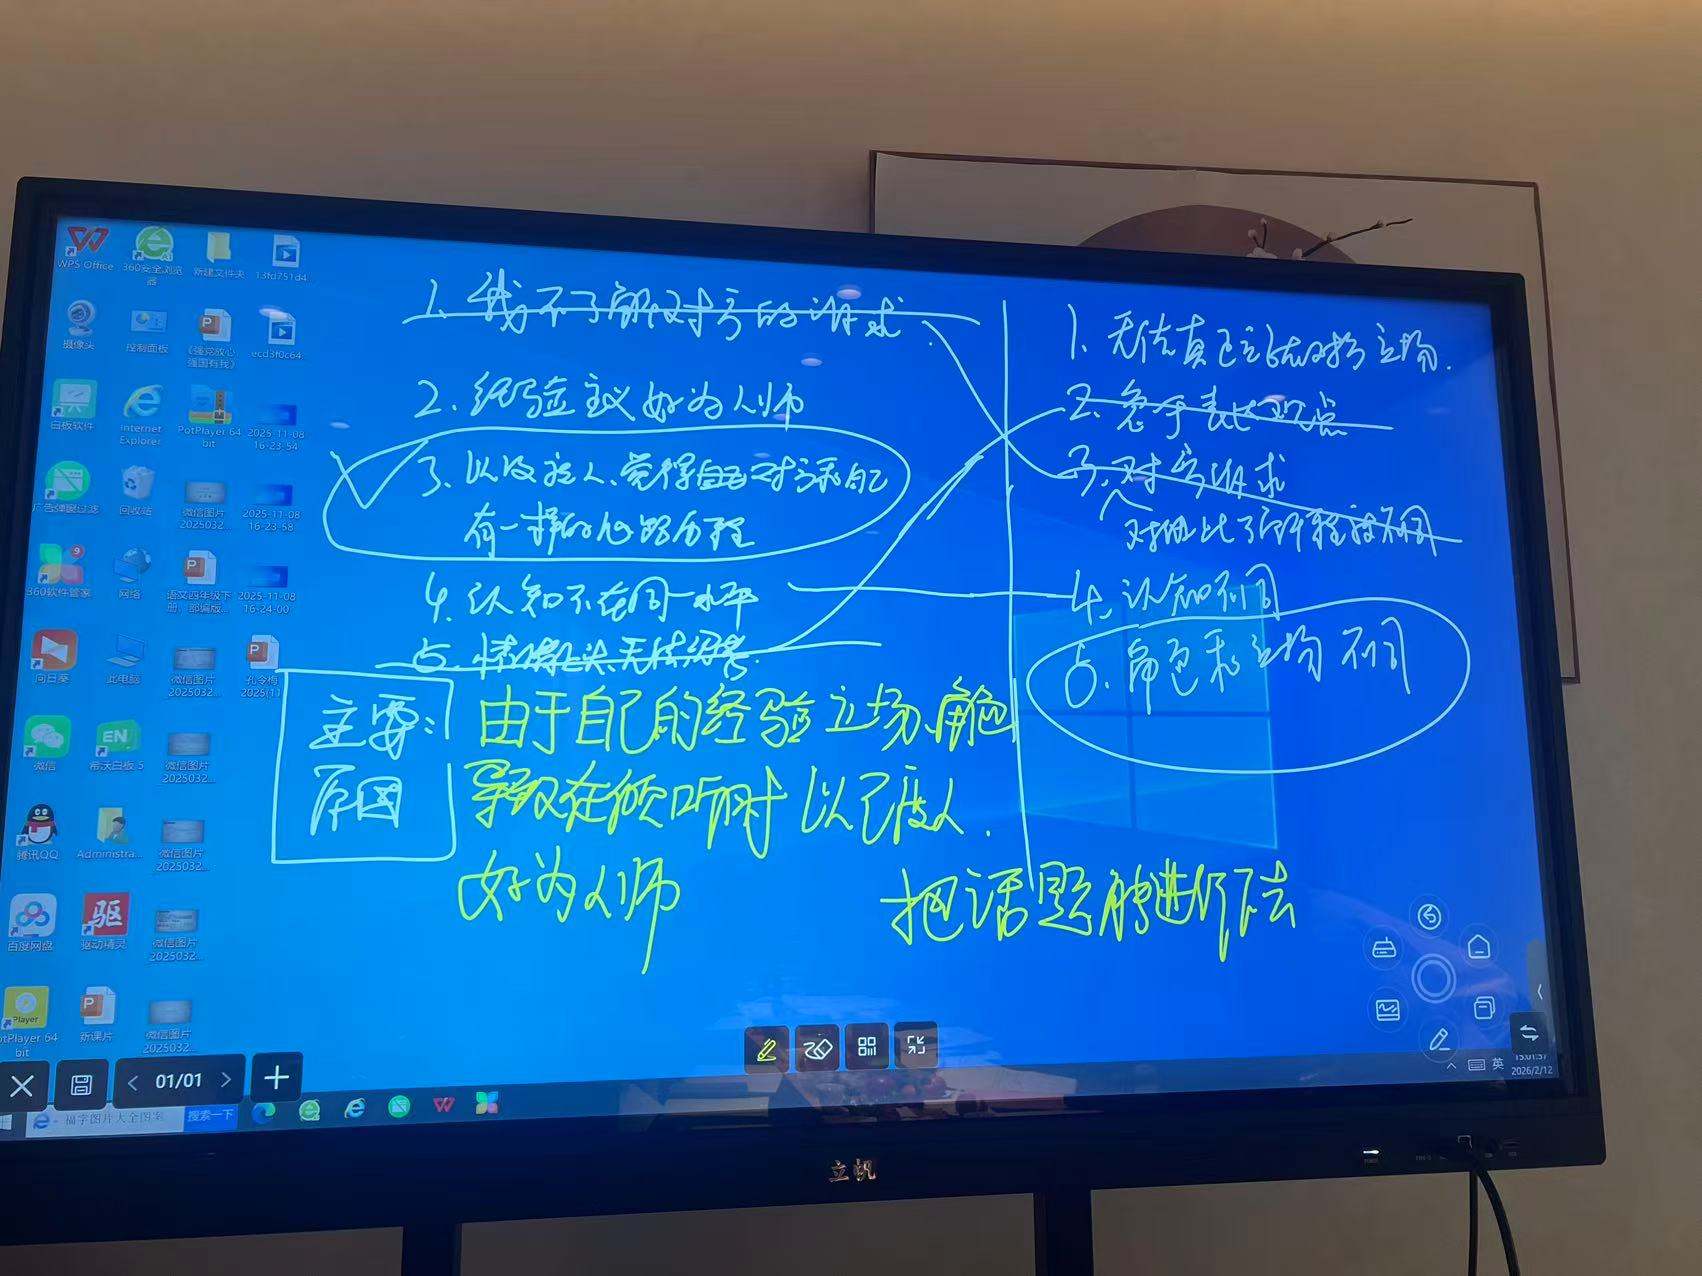 WPS Office
360安全浏览器
新建文件夹
13fd751d4
摄像头
控制面板
《强党放心,
强国有我》
ecd3f0c64...
白板软件
Internet
Explorer
PotPlayer 64
bit
2025-11-08
16-23-54
广告弹窗过滤
回收站
微信图片
2025032...
2025-11-08
16-23-58
9
360软件管家
网络
语文四年级下
册、部编版...
2025-11-08
16-24-00
向日葵
此电脑
微信图片
2025032...
孔令梅
2025(11
微信
EN
希沃白板 5
微信图片
2025032...
腾讯QQ
Administra...
微信图片
2025032...
百度网盘
驱
驱动精灵
微信图片
2025032...
Player
otPlayer 64
bit
新课片
微信图片
2025032...
1. 我不了解对方的诉求.
2. 经验主义 好为人师
3. 以及论人、觉得自己 对方和自己
有一样的心路历程
4. 认知不在同一水平
5. 情绪上头 无法倾听.
1. 无法真正站在对方立场.
2. 急于表达观点
3. 对方诉求
对彼此了解程度不同
4. 认知不同
5. 角色和立场不同
主要:
原因
由于自己的经验 立场、角色
导致在倾听时 以己度人.
好为人师
把话题能进行下去
01/01
福字图片大全图案
搜索一下
英
15:01:37
2026/2/12
立帆